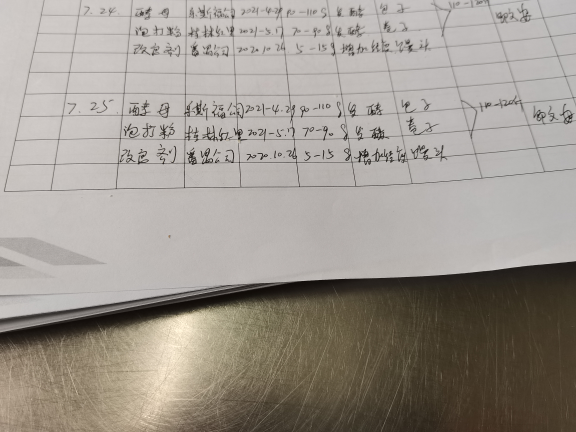 7.24. 酵母 乐斯福公司 2021-4.29 90-110g 发酵 包子 110-120斤
泡打粉 2021-5.17 70-90g 发酵 卷子
改良剂 公司 2020.10.26 5-15g 增加 馒头
7.25 酵母 乐斯福公司 2021-4.29 90-110g 发酵 包子 110-120斤
泡打粉 2021-5.17 70-90g 发酵 卷子
改良剂 公司 2020.10.26 5-15g 增加 馒头